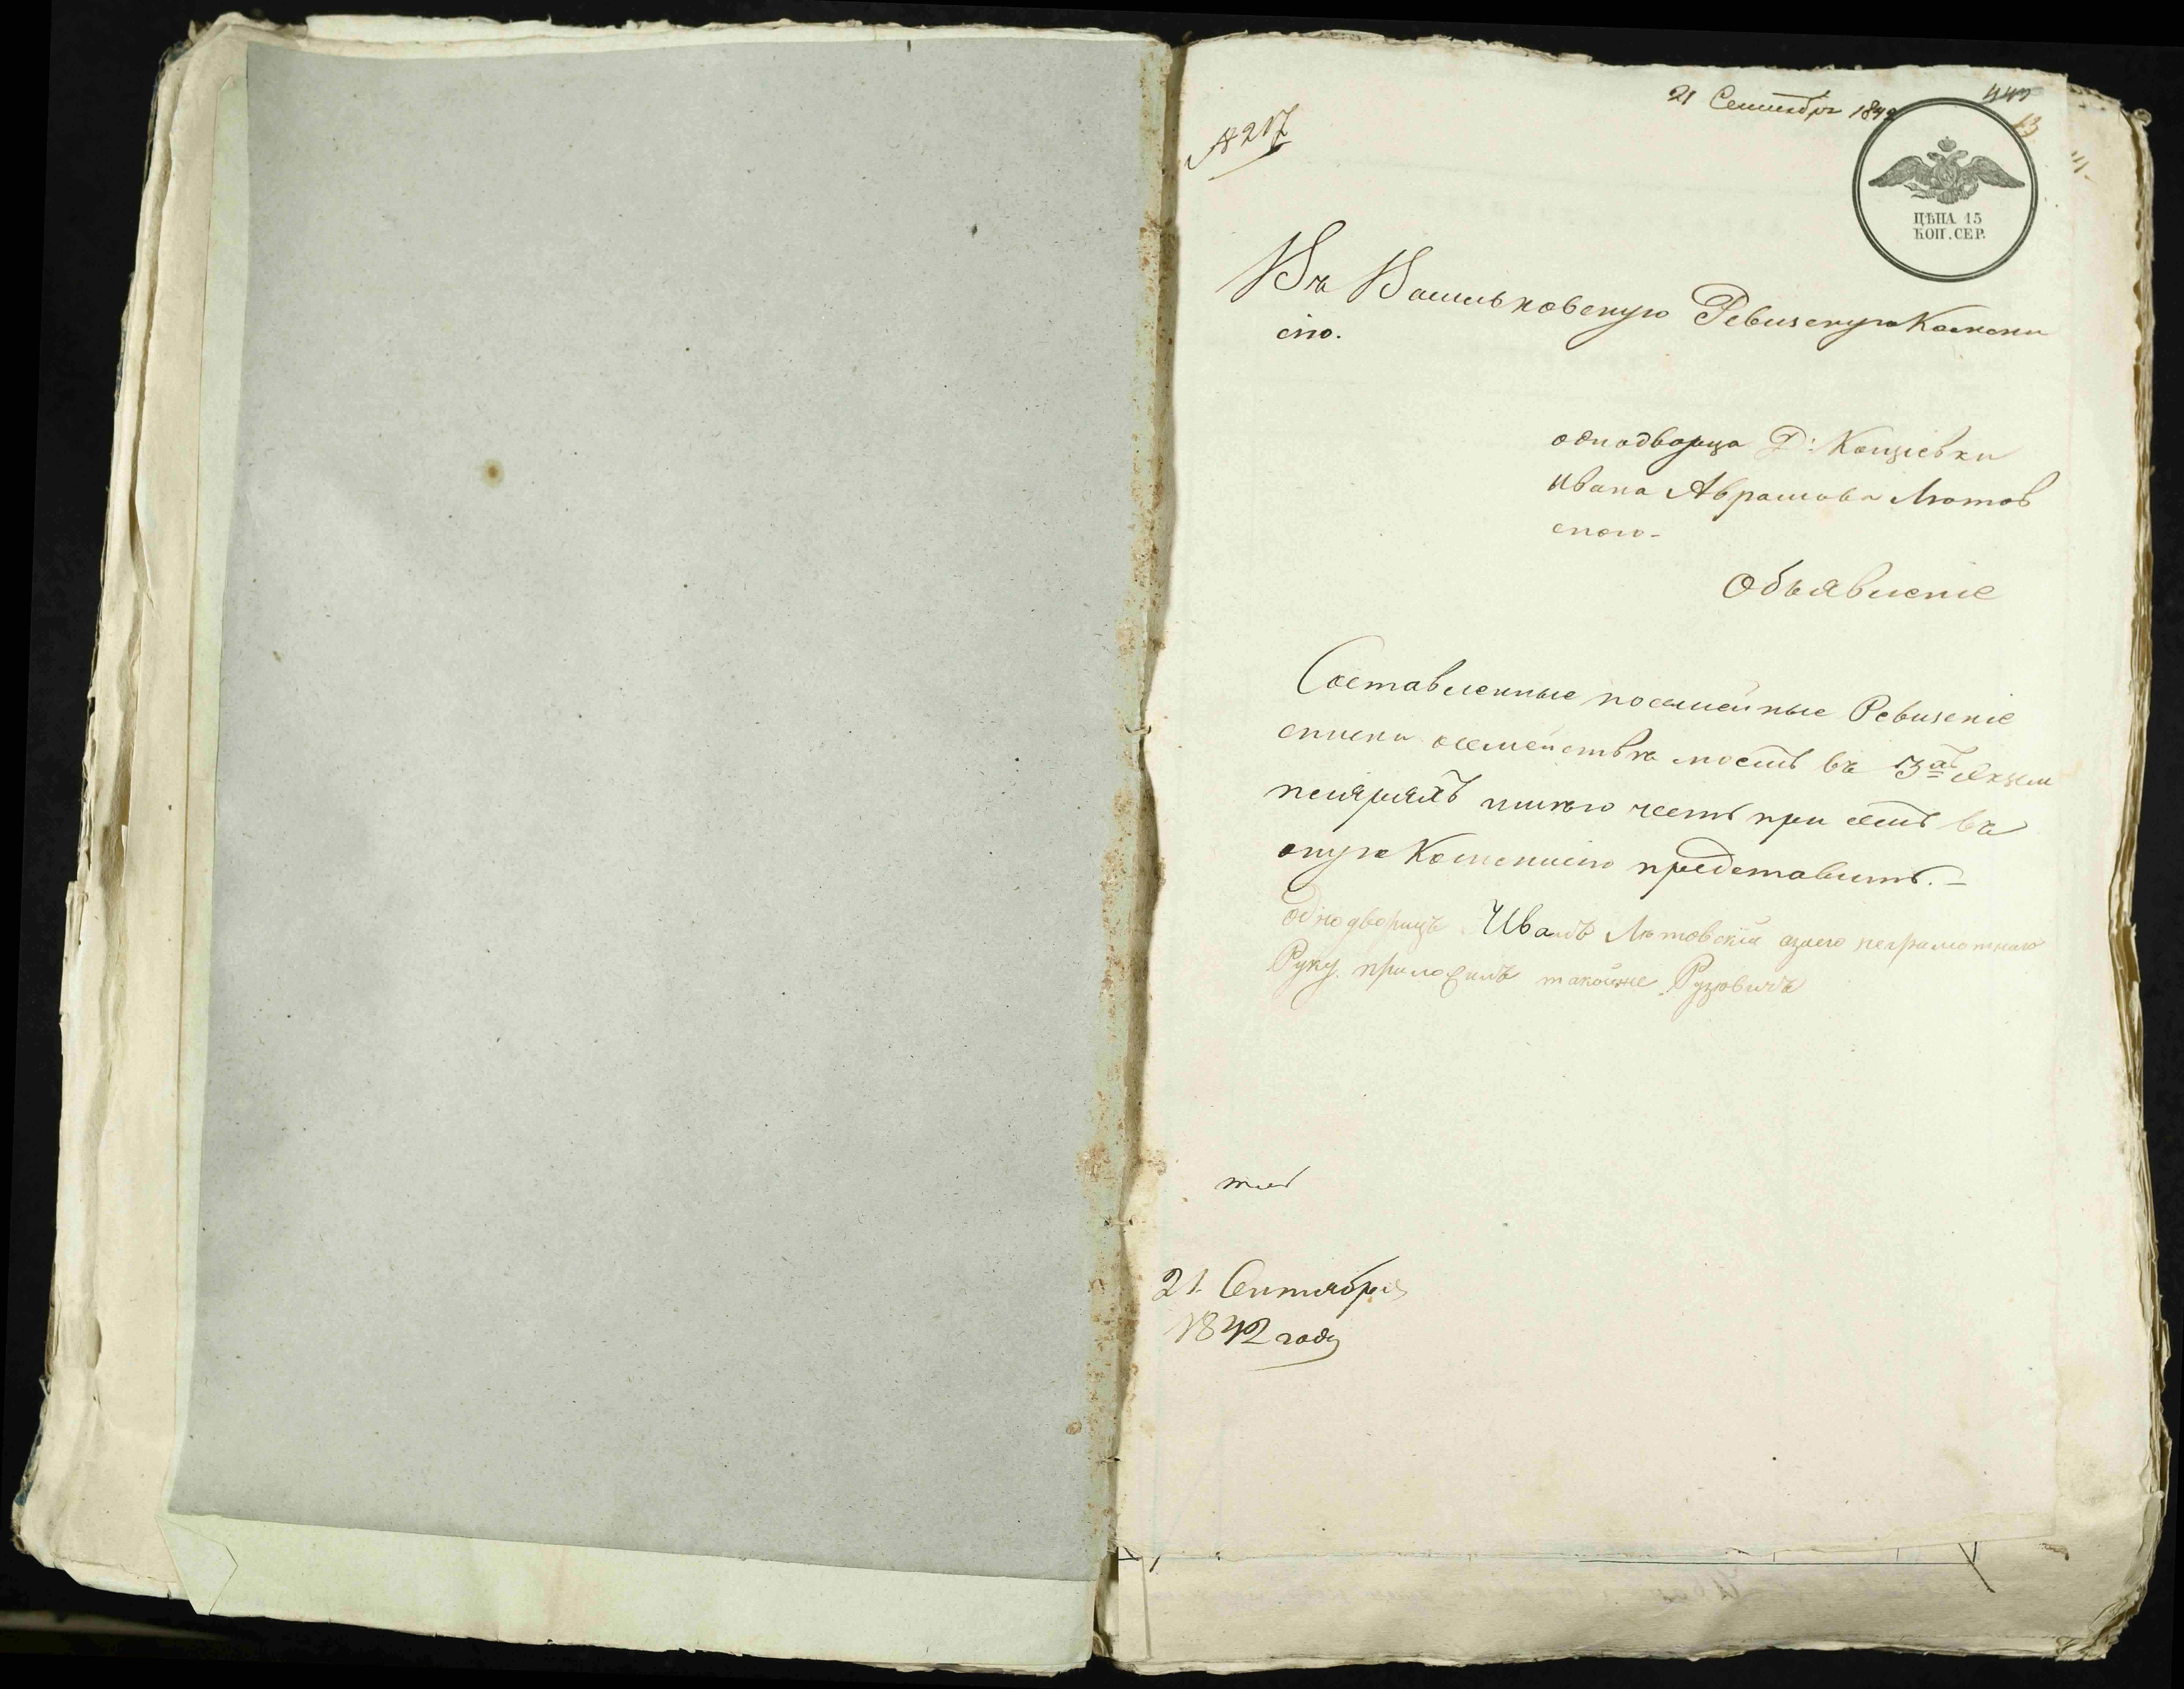 21 Сентября 1842
443
13
№ 217
ЦѢНА 15
КОП. СЕР.
Въ Васильковскую Ревизскую Комми
сію.
однодворца Д: Концѣвки
Ивана Аврамова Лютов
скаго-
Объявленіе
Составленные посемейные Ревизскіе
списки о семействѣ моемъ въ 3хъ Экзем
плярахъ имѣю честь при семъ въ
оную Коммисію представить.-
Однодворецъ Иванъ Лютовскій а за его неграмотнаго
Руку приложилъ такойже Рузовичъ
21 Сентября
1842 году